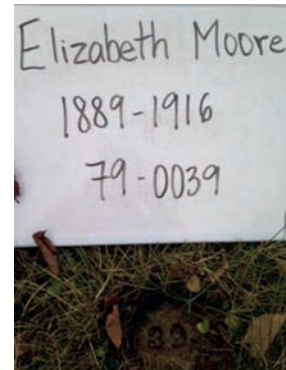 Elizabeth Moore
1889-1916
79-0039
39